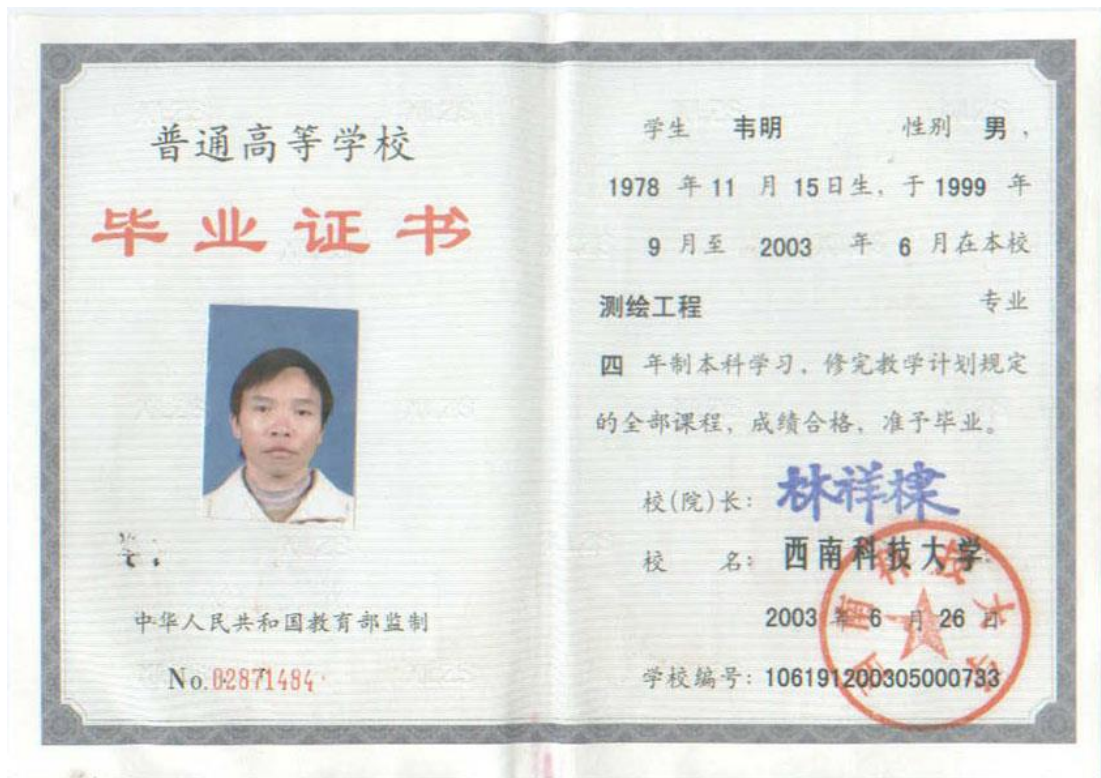 普通高等学校
毕业证书
中华人民共和国教育部监制
No.02871484
学生 韦明 性别 男，
1978 年 11 月 15日生，于 1999 年
9 月至 2003 年 6 月在本校
测绘工程 专业
四 年制本科学习，修完教学计划规定
的全部课程，成绩合格，准予毕业。
校(院)长：
校 名：西南科技大学
2003 年 6 月 26 日
学校编号：106191200305000733
西南科技大学